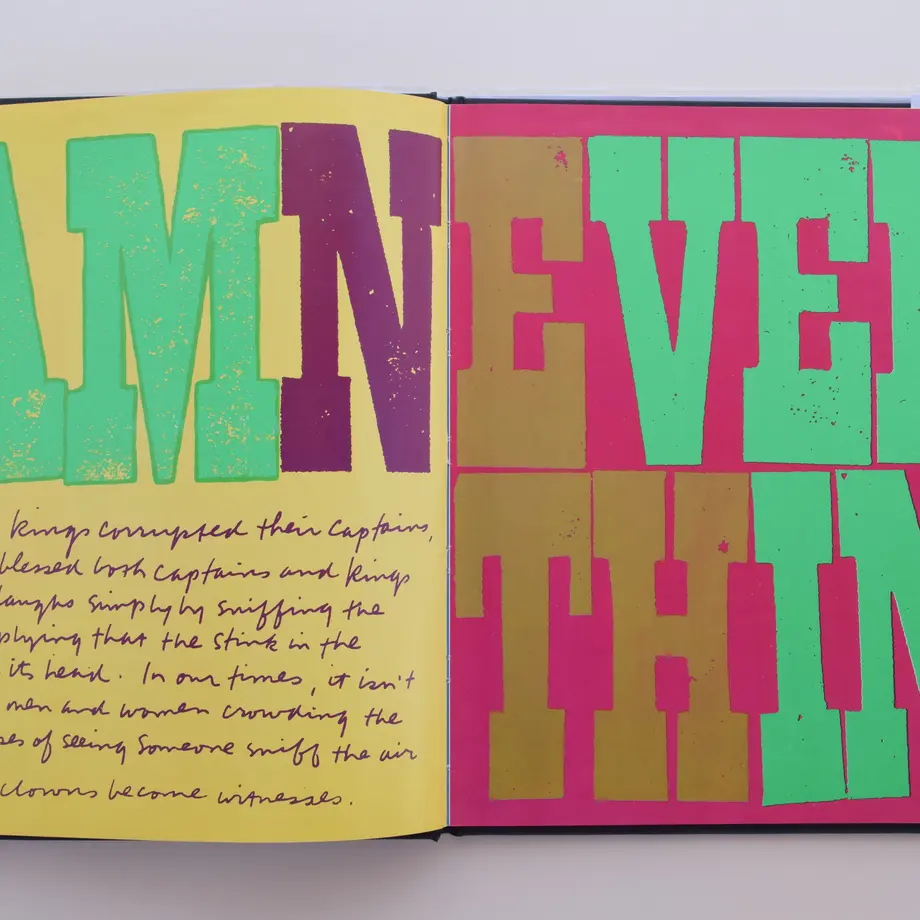 AMN
kings corrupted their captains,
blessed both captains and kings
laughs simply by sniffing the
plying that the stink in the
its head. In our times, it isn't
men and women crowding the
ses of seeing someone sniff the air
clowns become witnesses.
EVE
THIN